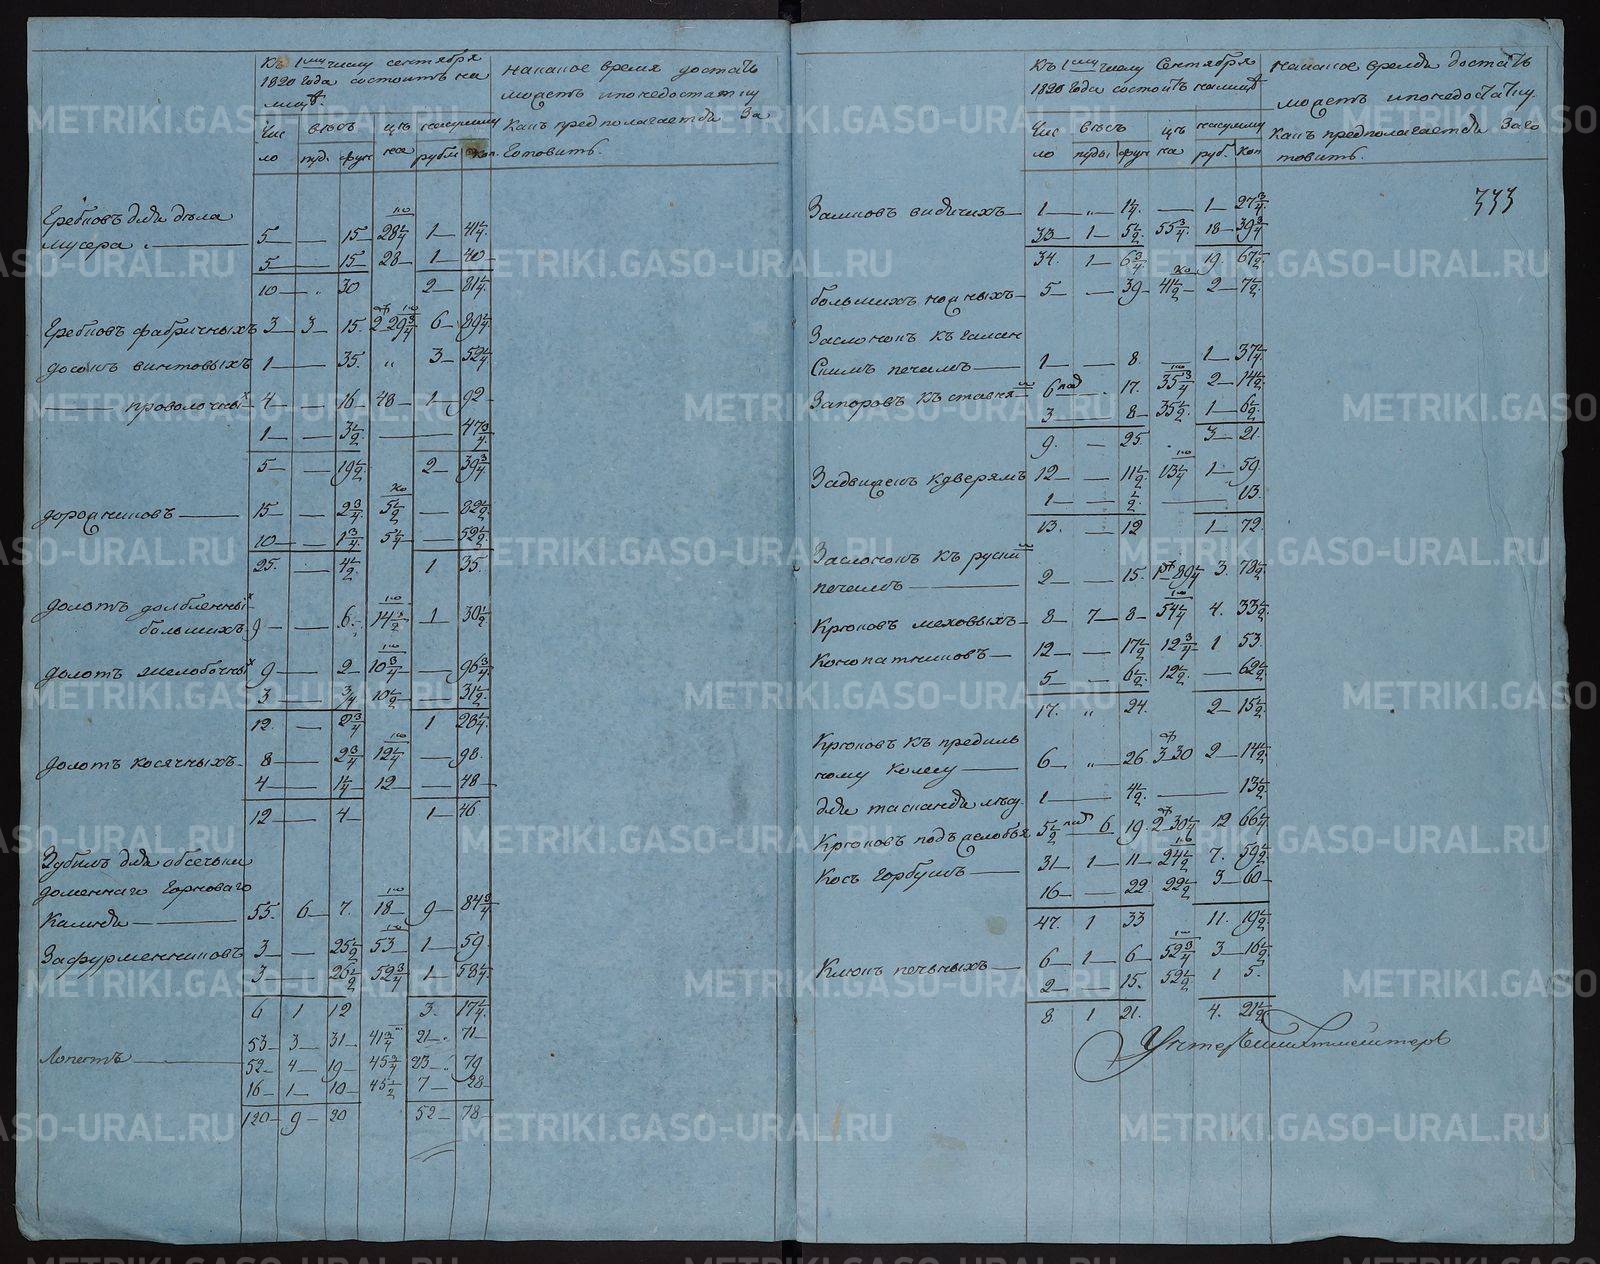 Къ 1му числу сентября
1820 года состоитъ на
лицо.
на какое время достать
можетъ и по недостатку
какъ предполагается за
готовить.
Чис
ло
вѣсъ
пуд.
фун
цѣ
на
на сумму
рубл
коп.
Гребковъ для дѣла
мусера 5 — 15 28 1/4 1 — 41 1/4
5 — 15 — 28 — 1 — 40
10 — 30 2 — 81 1/4
Гребковъ фабричныхъ 3 — 3 — 15 2 29 3/4 6 — 89 1/4
досокъ винтовыхъ 1 — 35 „ 3 — 52 1/4
проволочных 4 — 16 — 48 — 1 — 92
1 — 3 1/2 — 47 3/4
5 — 19 1/2 2 — 39 3/4
дорожниковъ 15 — 2 3/4 5 1/2 — 82 1/2
10 — 1 3/4 5 1/4 — 52 1/2
25 — 4 1/2 1 35
долотъ долбленных
большихъ 9 — 6 14 1/2 1 30 1/2
долотъ желобочных 9 — 2 — 10 3/4 — 96 3/4
3 — 3/4 10 1/2 — 31 1/2
12 — 2 3/4 1 28 1/4
долотъ косячныхъ 8 — 2 3/4 12 1/4 — 98
4 — 1 1/4 12 — 48
12 — 4 — 1 — 46
Зубилъ для обсечки
доменнаго горноваго
камня 55 6 — 7 18 — 9 — 84 3/4
Зафурменниковъ 3 — 25 1/2 53 1 — 59
3 — 26 1/2 52 3/4 1 — 58 1/4
6 1 12 3 17 1/4
53 — 3 — 31 — 41 3/4 21 — 71
Лопатъ 52 — 4 — 19 — 45 3/4 23 — 79
16 — 1 — 10 — 45 1/2 7 — 28
120 — 9 — 20 52 — 78
Къ 1му числу Сентября
1820 года состоитъ на лицо
на какое время достать
можетъ и по недостатку
какъ предполагается заго
товить.
Чис
ло
вѣсъ
пуды
фун
цѣ
на
на сумму
руб.
коп
333
Замковъ висячихъ 1 — „ 1 1/4 — 1 — 27 3/4
33 — 1 — 5 1/2 55 3/4 18 — 39 3/4
34 1 — 6 3/4 19 67 1/2
большихъ ножныхъ 5 — 39 — 41 1/2 2 — 7 1/2
Заслонокъ къ галан
скимъ печамъ 1 — 8 1 — 37 1/4
Запоровъ къ ставня 6 17 35 3/4 2 — 14 1/2
3 — 8 — 35 1/2 1 — 6 1/2
9 — 25 3 — 21
Задвижекъ к дверямъ 12 — 11 1/2 13 1/4 1 — 59
1 — 1/2 — 13
13 — 12 1 — 72
Заслонокъ къ руски
печамъ 2 — 15 1 — 89 1/4 3 78 1/2
Крюковъ меховыхъ 8 — 7 — 8 — 54 1/4 4 33 1/2
Конопатниковъ 12 — 17 1/2 12 3/4 1 53
5 — 6 1/2 12 1/2 — 62 1/2
17 „ 24 2 — 15 1/2
Крюковъ къ предиль
ному колесу 6 — „ 26 3 30 2 — 14 1/2
для тасканья лѣсу 1 — 4 1/2 — 13 1/2
Крюковъ подъ желобья 5 1/2 6 19 2 30 1/4 12 66 1/4
Косъ горбушъ 31 — 1 — 11 — 24 1/2 7 59 1/2
16 — 22 22 1/2 3 — 60
47 1 33 11 19 1/2
Клюкъ печныхъ 6 — 1 — 6 — 52 3/4 3 — 16 1/2
2 — 15 52 1/2 1 5
8 1 21 4 21 1/2
Унтершихтмейстеръ